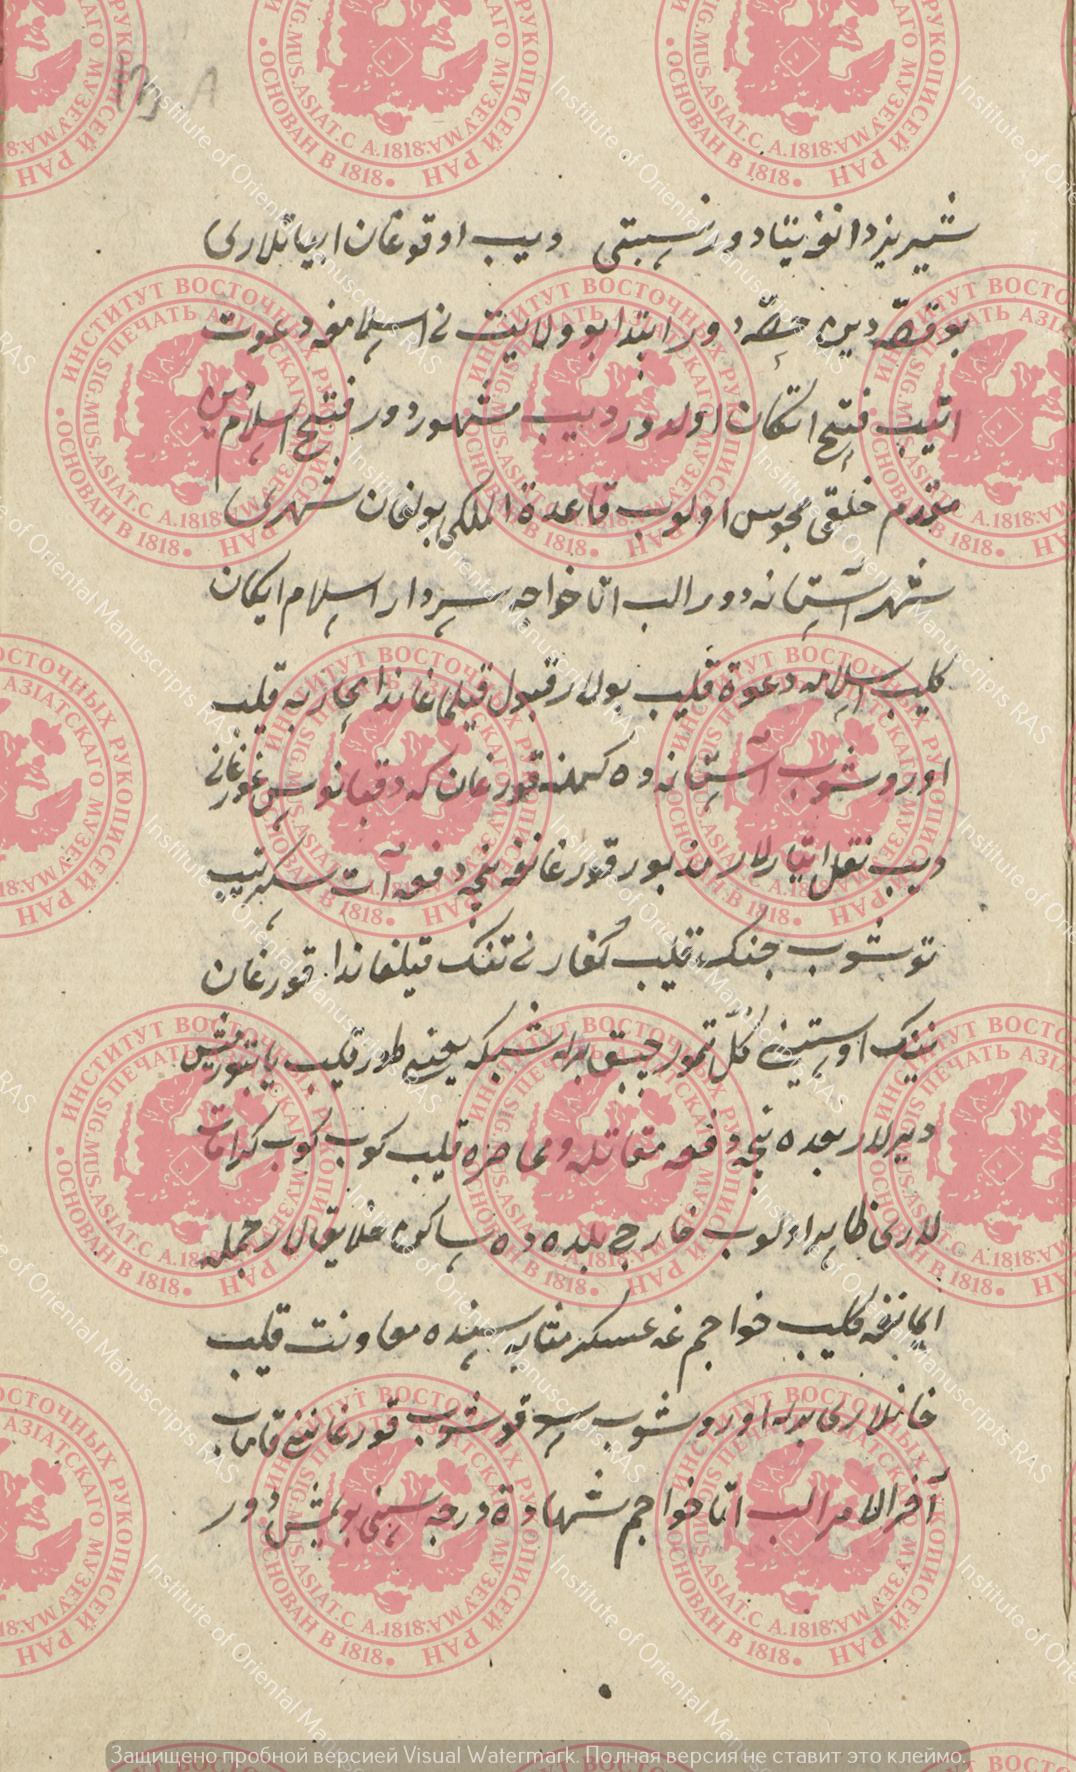 شیریزدانغه یتادور نسبتی دیب اوقوغان ابیاتلاری
بو قصّه دین حصّه دور ابتدا بو ولایت نی اسلامغه دعوت
اتیب فتح اتکان اولدور دیب مشهور دور فتح اسلام دین
متقدم خلقی مجوس اولوب قاعدة الملکی بولغان شهری
شهر آستانه دور الب اتا خواجه سردار اسلام ایکان
کلیب اسلامه دعوة قلیب بولار قبول قیلماغاندا محاربه قلیب
اوروشوب آستانه ده کهنه قورغان که دقیانوس غورغانی
دیب نقل ایتارلار مذبور قورغانغه نچه دفعه آت سکرتیب
توشوب جنک قلیب کفار نی تنک قیلغاندا قورغان
نینک اوستینی کلّ تمور چبیق برله شبکه یعنی طور قلیب یاتبورمش
دیرلار بعده نچه دفعه مقاتله و محاصره قلیب کوب کوب کرامات
لاری ظاهر اولوب خارج بلده ده ساکن خلایقلار جمله
ایمانغه کلیب خواجم غه عسکر مثابه سینده معاونت قلیب
خانلاری برله اوروشوب سو قوشوب قورغاننی قاماب
آخر الامر الب اتا خواجم شهادة درجه سینی بولمش دور
Защищено пробной версией Visual Watermark. Полная версия не ставит это клеймо.